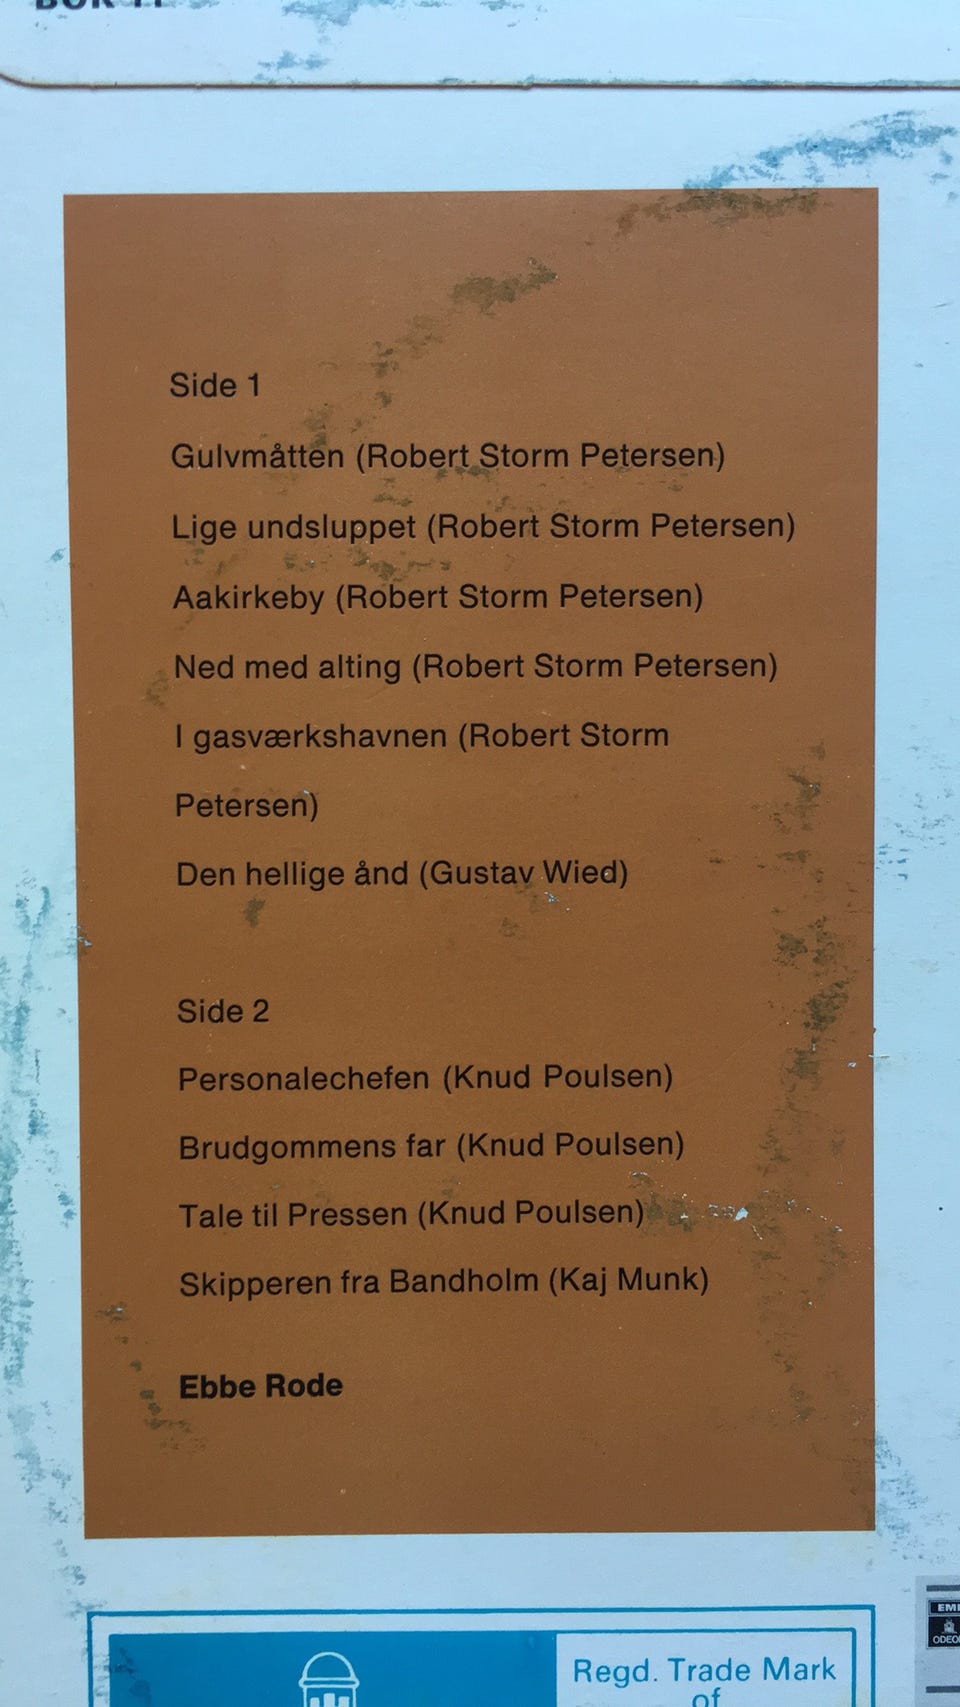 Side 1
Gulvmåtten (Robert Storm Petersen)
Lige undsluppet (Robert Storm Petersen)
Aakirkeby (Robert Storm Petersen)
Ned med alting (Robert Storm Petersen)
I gasværkshavnen (Robert Storm
Petersen)
Den hellige ånd (Gustav Wied)
Side 2
Personalechefen (Knud Poulsen)
Brudgommens far (Knud Poulsen)
Tale til Pressen (Knud Poulsen)
Skipperen fra Bandholm (Kaj Munk)
Ebbe Rode
Regd. Trade Mark
of
EMI